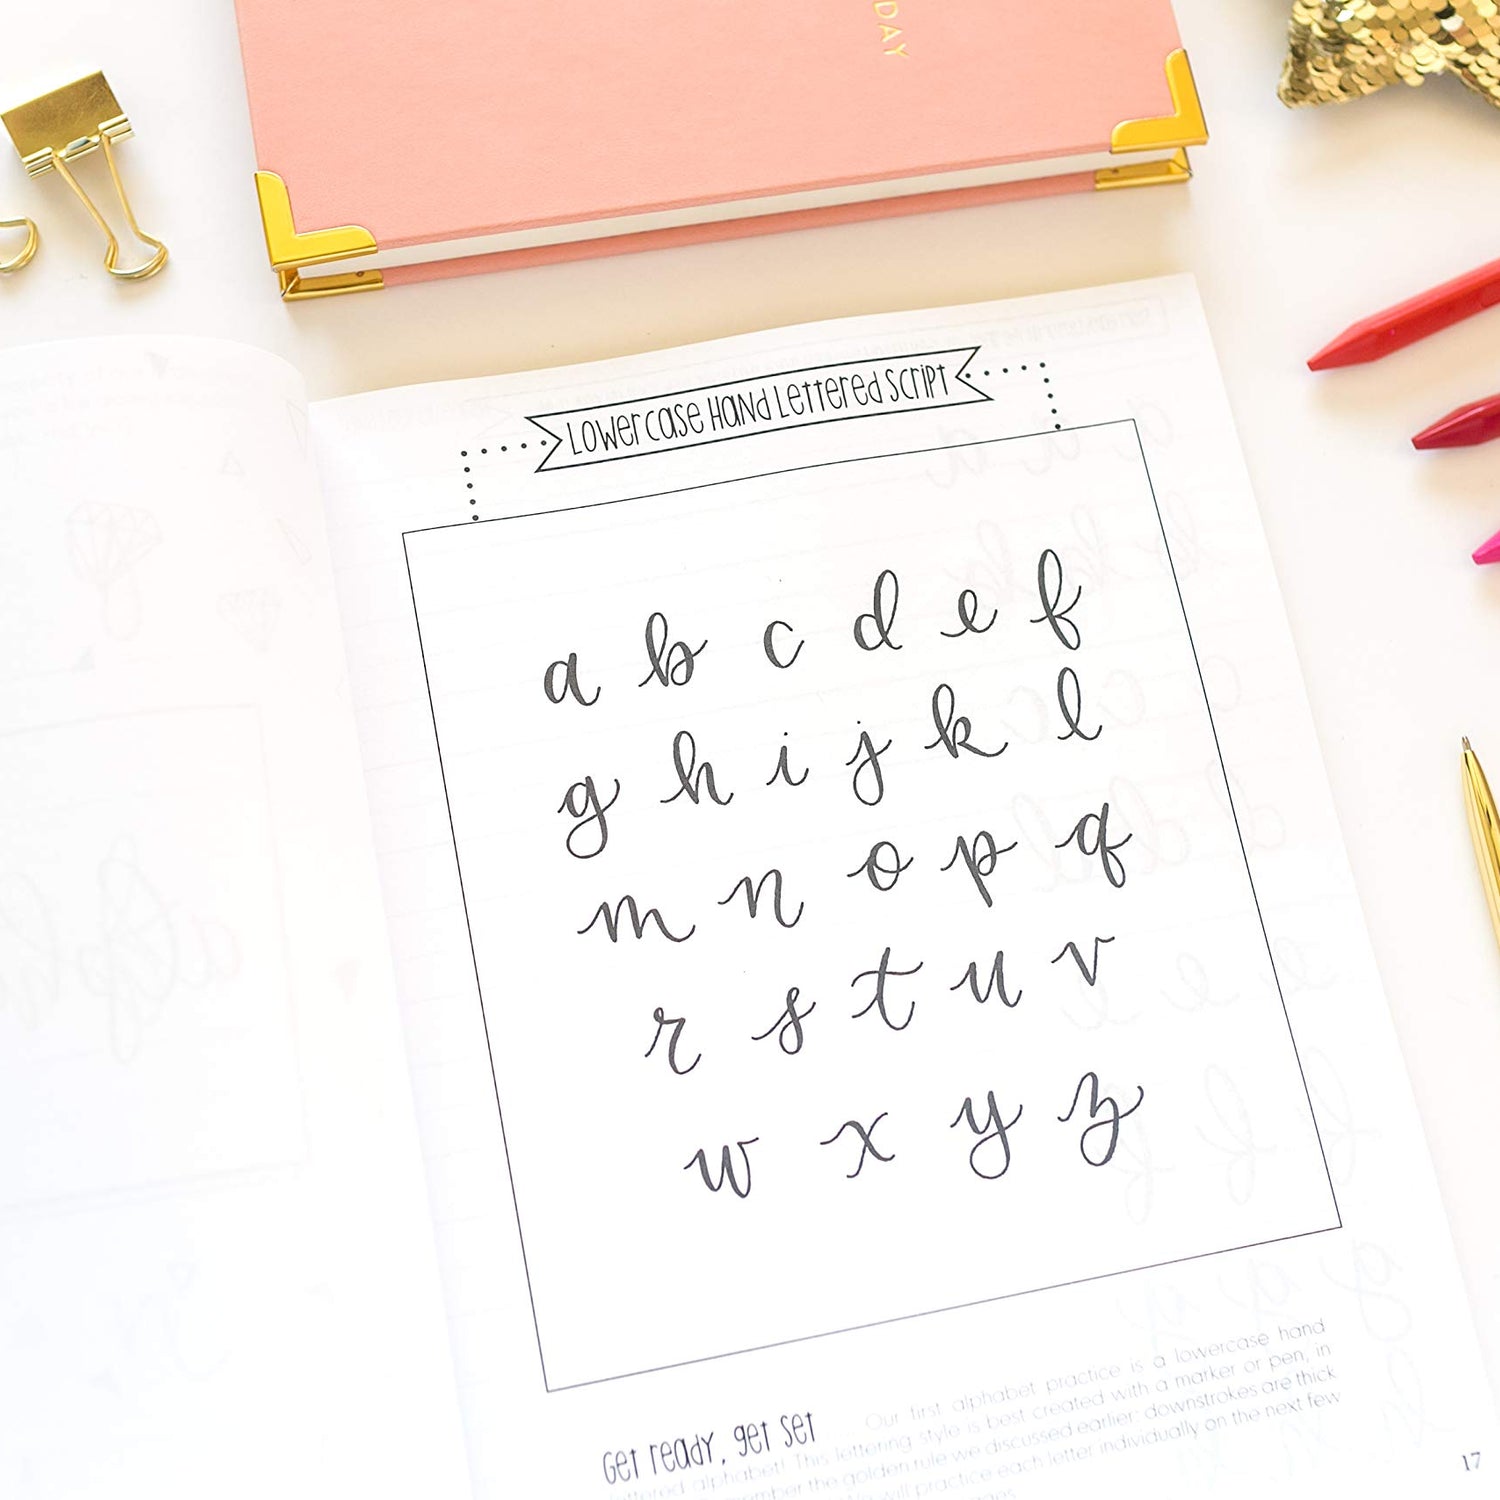 DAY
Lowercase Hand Lettered Script
a b c d e f
g h i j k l
m n o p q
r s t u v
w x y z
Get Ready, Get Set ... Our first alphabet practice is a lowercase hand
lettered alphabet! This lettering style is best created with a marker or pen, in
the golden rule we discussed earlier: downstrokes are thick
will practice each letter individually on the next few
17